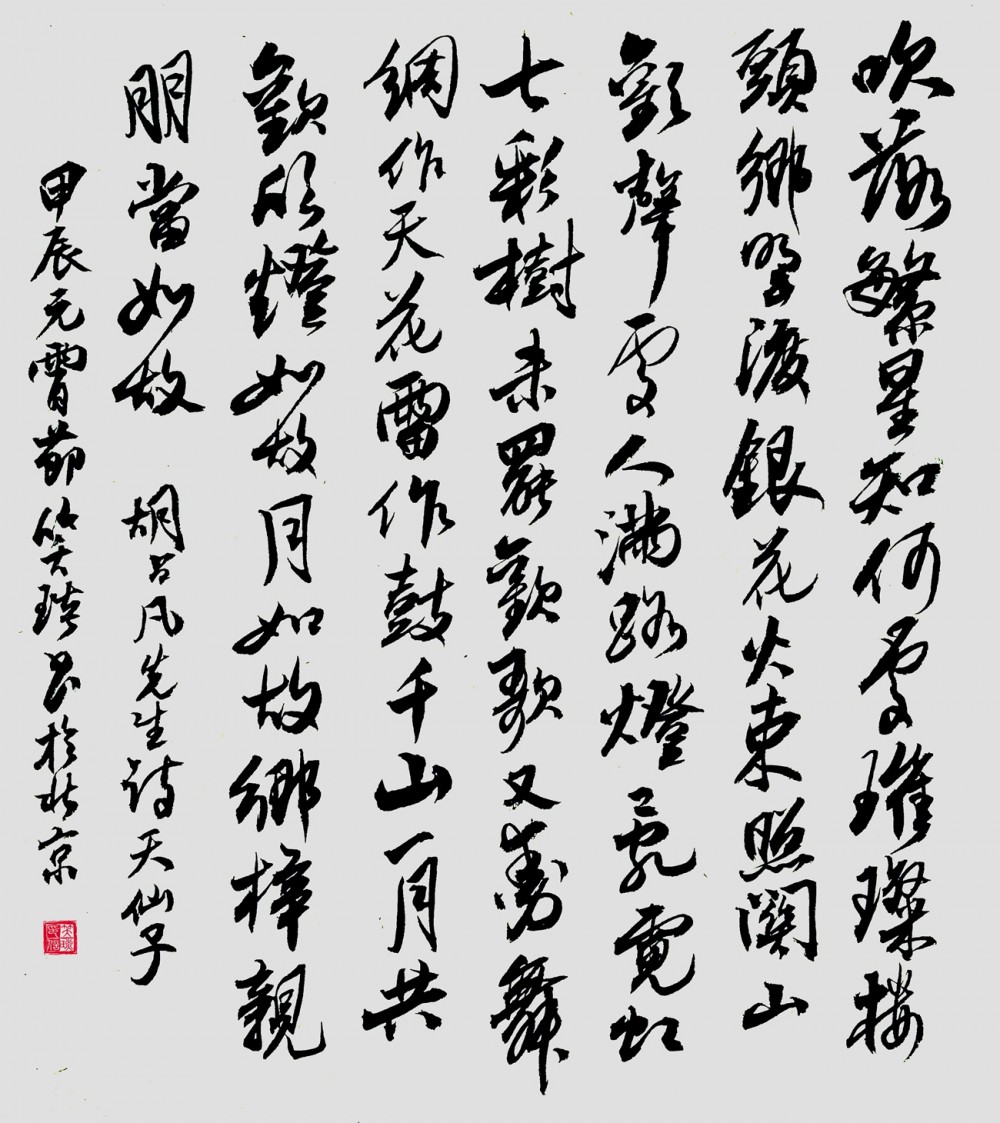 吹落繁星知何處璀璨樓
頭鄉望渡銀花火束照關山
歡聲處人滿路燈亂霓虹
七彩樹未罷歡歌又舞
綢作天花雷作鼓千山一月共
歡欣燈如故月如故鄉梓親
朋當如故 胡占凡先生詩天仙子
甲辰元霄節笑書於北京